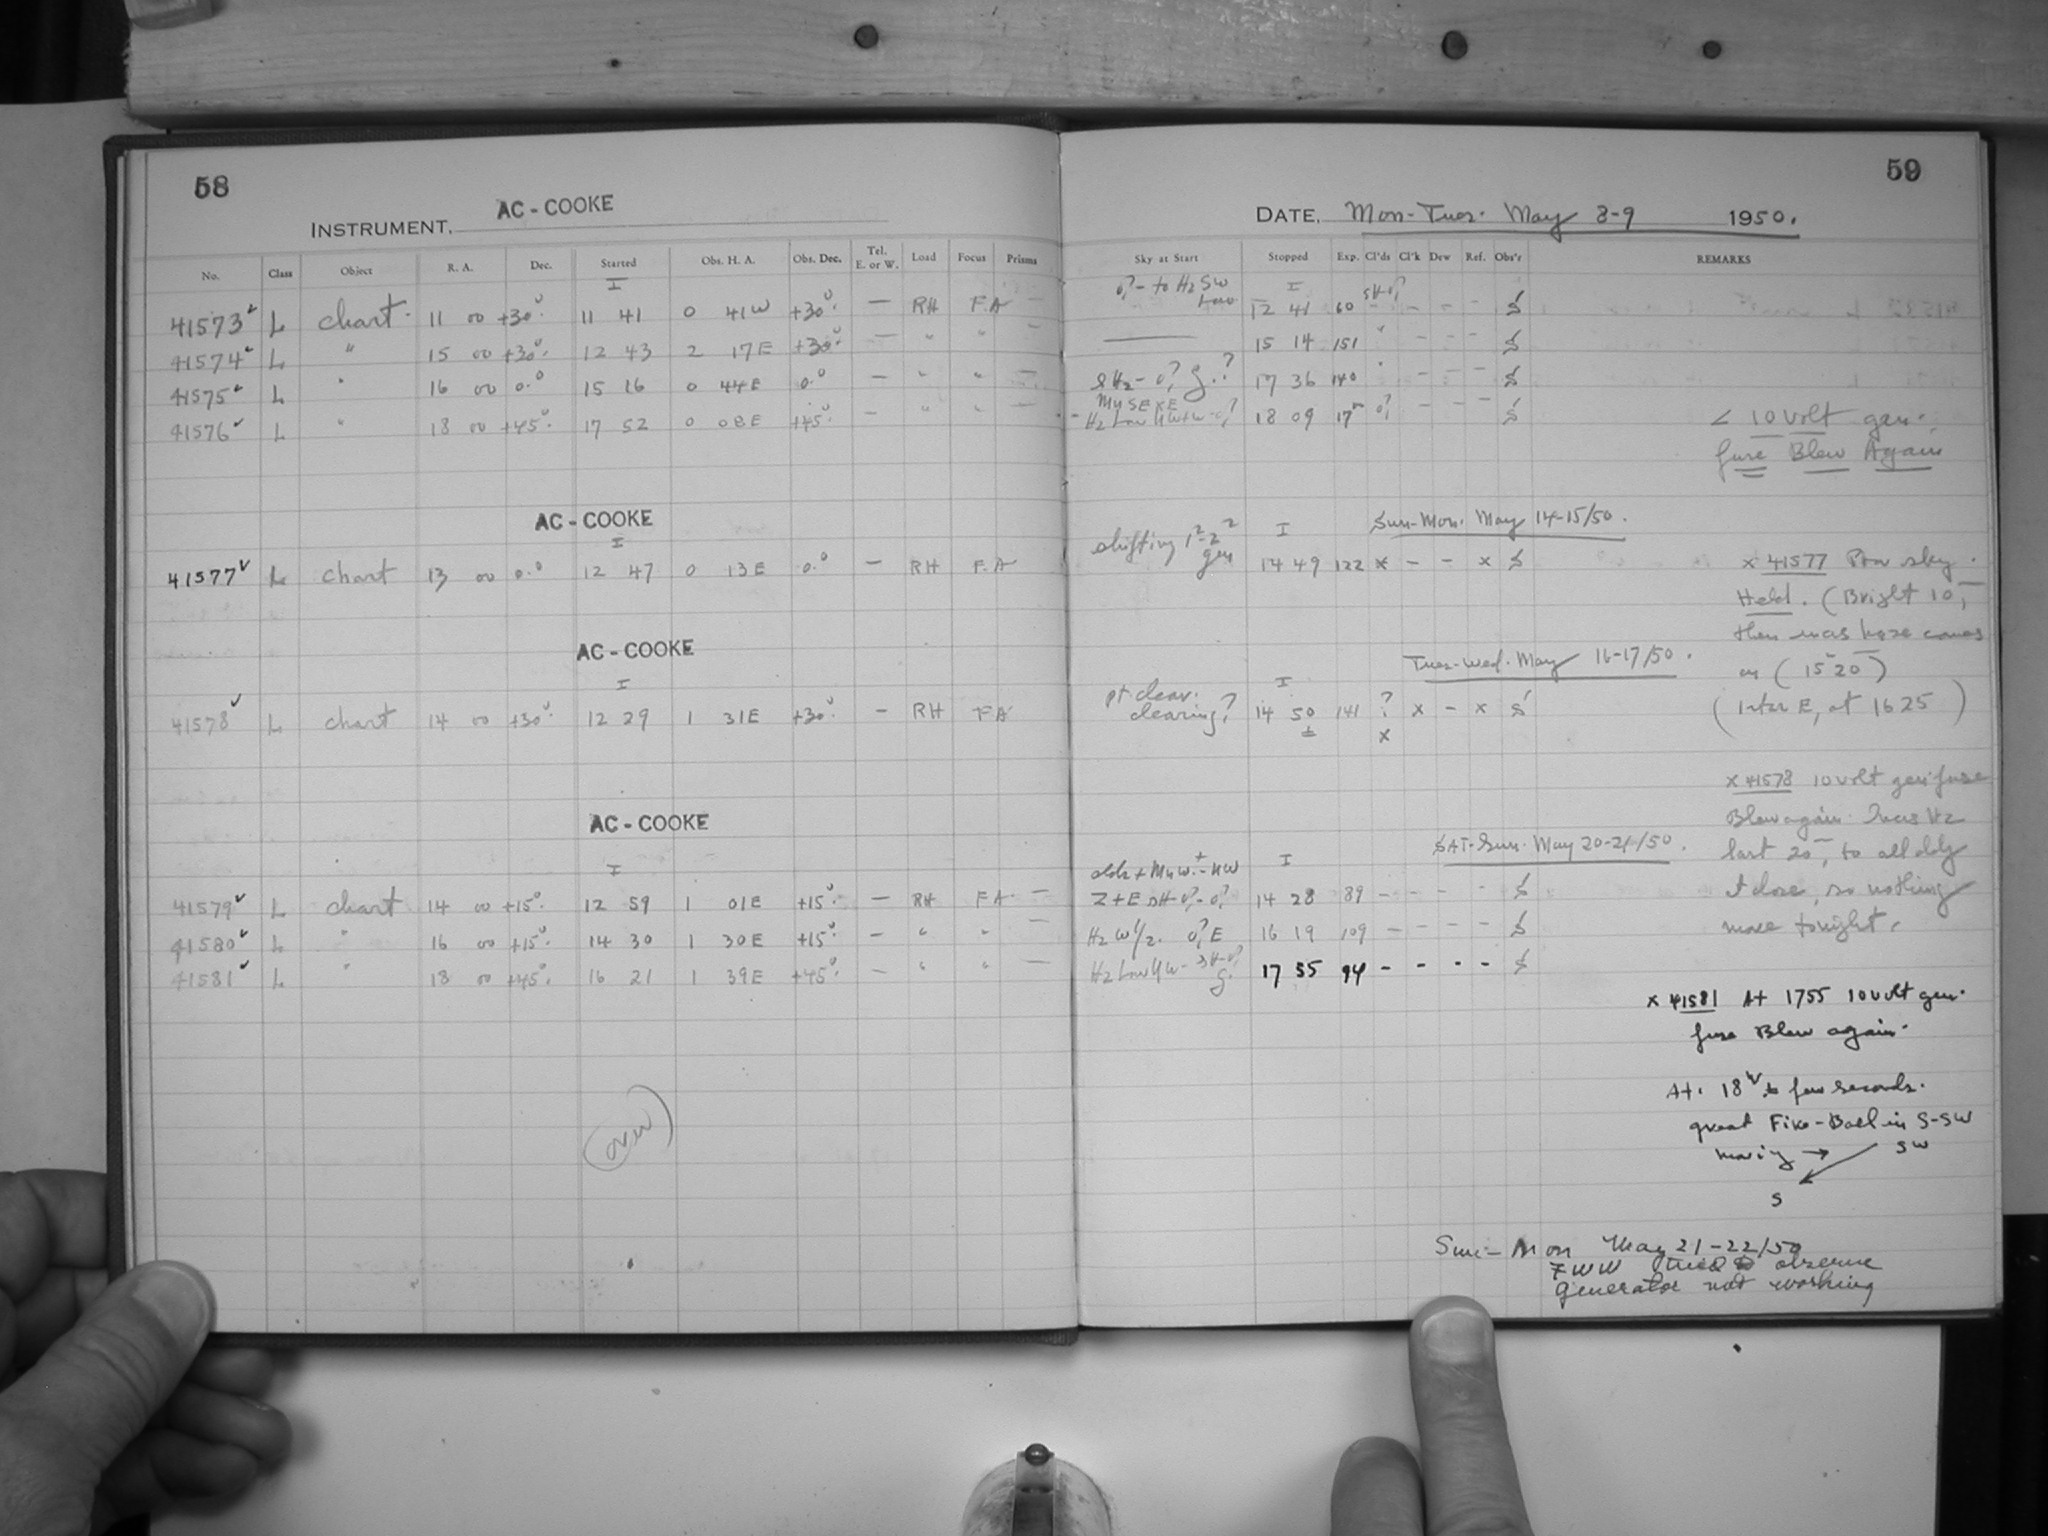 58
AC - COOKE
INSTRUMENT,
No. Class Object R. A. Dec. Started Obs. H. A. Obs. Dec. Tel. E. or W. Load Focus Prisms
I
41573 L chart. 11 00 +30° 11 41 0 41W +30° — RH FA —
41574 L " 15 00 +30° 12 43 2 17E +30° — " " —
41575 L " 16 00 0.° 15 16 0 44E 0.° — " " —
41576 L " 18 00 +45° 17 52 0 08E +45° — " " —
AC - COOKE
I
41577 L chart 13 00 0.° 12 47 0 13E 0.° — RH F.A
AC - COOKE
I
41578 L chart 14 00 +30° 12 29 1 31E +30° — RH FA
AC - COOKE
I
41579 L chart 14 00 +15° 12 59 1 01E +15° — RH FA —
41580 L " 16 00 +15° 14 30 1 30E +15° — " " —
41581 L " 18 00 +45° 16 21 1 39E +45° — " " —
(over)
59
DATE, Mon-Tues. May 8-9 1950.
Sky at Start Stopped Exp. Cl'ds Cl'k Dew Ref. Obs'r REMARKS
to Hz SW Low I
12 41 60 - - - S
15 14 151 - - - S
17 36 140 - - - S
18 09 17 - - - S
< 10 volt gen.
fuse Blew Again
Sun-Mon. May 14-15/50.
shifting 1²-2² gen I
14 49 122 x - - x S
x 41577 Poor sky.
Held. (Bright 10,
then mas haze comes
on (15-20)
(Inter E, at 1625)
Tues-Wed. May 16-17/50.
pt clear. I
clearing? 14 50 141 ? x - x S
± x
x 41578 10 volt gen fuse
Blew again. Hz
last 20, to all cldy
I close, so nothing
more tonight.
SAT-Sun. May 20-21/50.
I
Z+E 14 28 89 - - - - S
Hz W 1/2. E 16 19 109 - - - - S
Hz Low 17 55 94 - - - - S
x 41581 At 1755 10 volt gen.
fuse Blew again.
At. 18 few seconds.
great Fire-Ball in S-SW
moving → SW
S
Sun-Mon May 21-22/50
FWW tried to observe
Generator not working